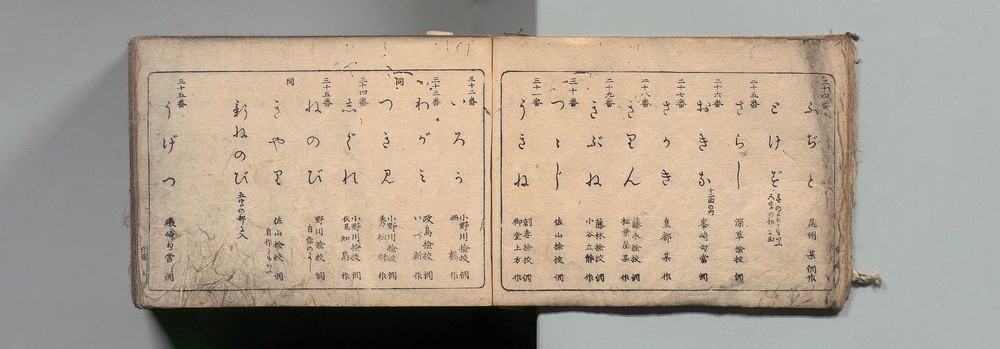 二十四番 ふぢと 尾州 某 調作
とけず
二十五番 さらし 深草検校 調
二十六番 おきな 十二曲の内 峯崎勾當 調
二十七番 さかき 皇都 某 作
二十八番 きりん 藤永検校 調 松葉屋某 作
二十九番 きぶね 藤林検校 調 小谷立静 作
三十番 つゝじ 佐山検校 調
三十一番 うきね 朝妻検校 調 御堂上方 作
三十二番 いろか 小野川検校 調 西鶴 作
三十三番 わがみ 政島検校 調 作
同 つきみ 小野川検校 調 作
三十四番 しぐれ 小野川検校 調 作
三十五番 ねのび 野川検校 調
同 きやり 佐山検校 調
新ねのび
三十五番 うげつ 磯崎勾當 調